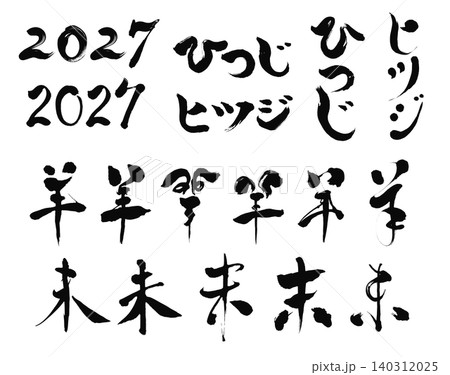 2027
2027
ひつじ
ヒツジ
ひつじ
ヒツジ
羊 羊 羊 羊 羊 羊
未 未 未 未 未
140312025